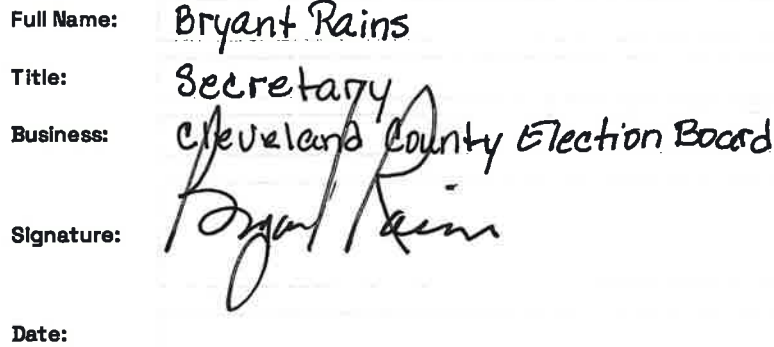 Full Name: Bryant Rains
Title: Secretary
Business: Cleveland County Election Board
Signature: Bryant Rains
Date: